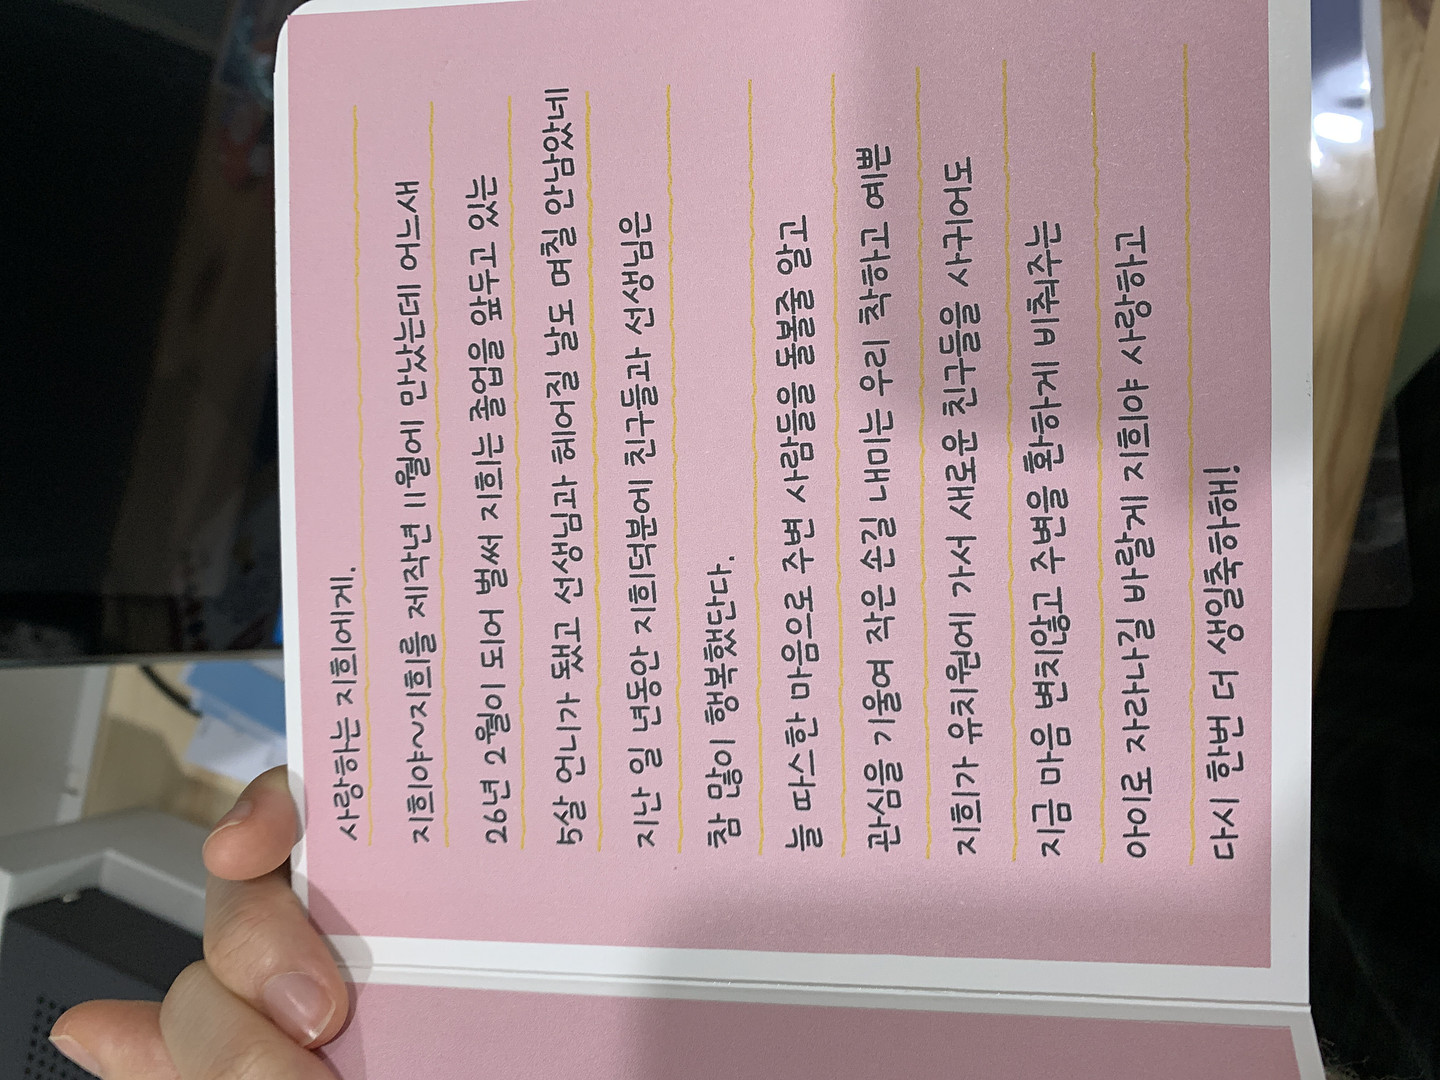 사랑하는 지희에게.
지희야~지희를 제작년 11월에 만났는데 어느새
26년 2월이 되어 벌써 지희는 졸업을 앞두고 있는
5살 언니가 됐고 선생님과 헤어질 날도 며칠 안남았네
지난 일 년동안 지희덕분에 친구들과 선생님은
참 많이 행복했단다.
늘 따스한 마음으로 주변 사람들을 돌볼줄 알고
관심을 기울여 작은 손길 내미는 우리 착하고 예쁜
지희가 유치원에 가서 새로운 친구들을 사귀어도
지금 마음 변치않고 주변을 환하게 비춰주는
아이로 자라나길 바랄게 지희야 사랑하고
다시 한번 더 생일축하해!